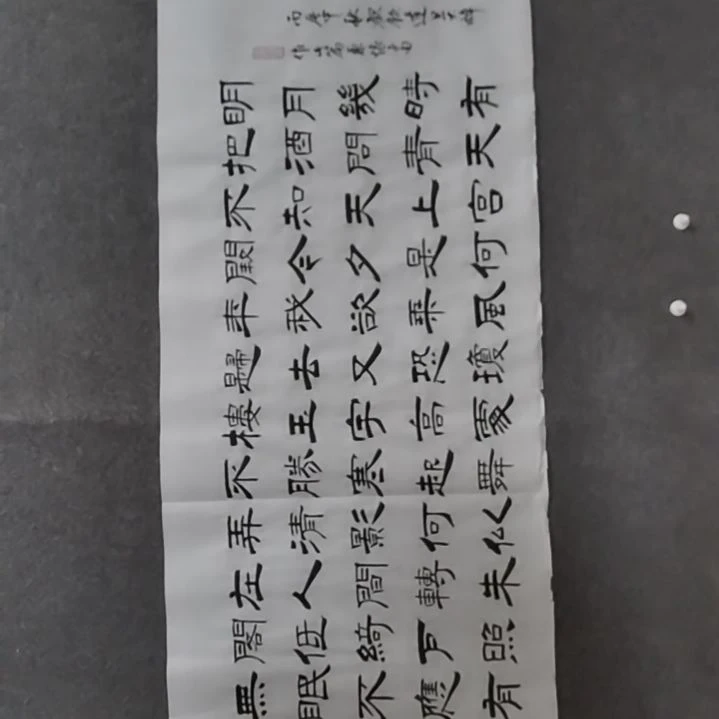 明月幾時有
把酒問青天
不知天上宮
闕今夕是何
年我欲乘風
歸去又恐瓊
樓玉宇高處
不勝寒起舞
弄清影何似
在人間轉朱
閣低綺戶照
無眠不應有